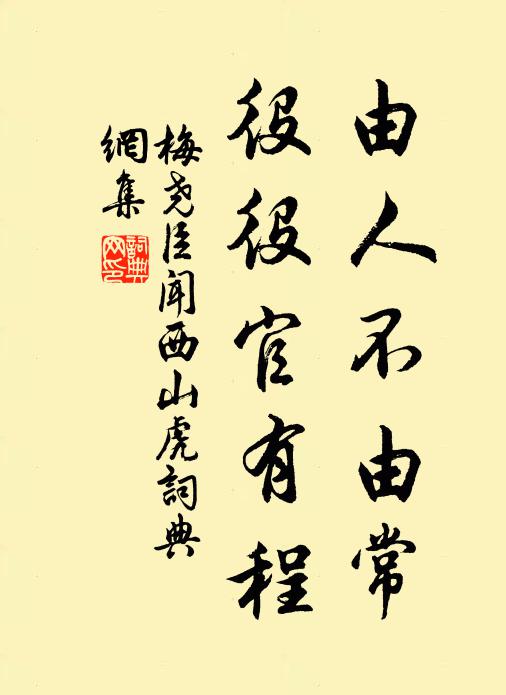 由人不由常
役役官有程
梅尧臣闻西山虎詞典
網集
詞典网印